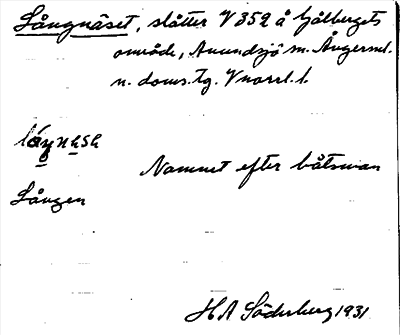 Långnäset, slåtter V 352 å Gålbergets
område, Anundsjö sn. Ångerml.
n. doms. tg. Vnorrl. l.
Namnet efter båtsman
Lången
H A Söderberg 1931